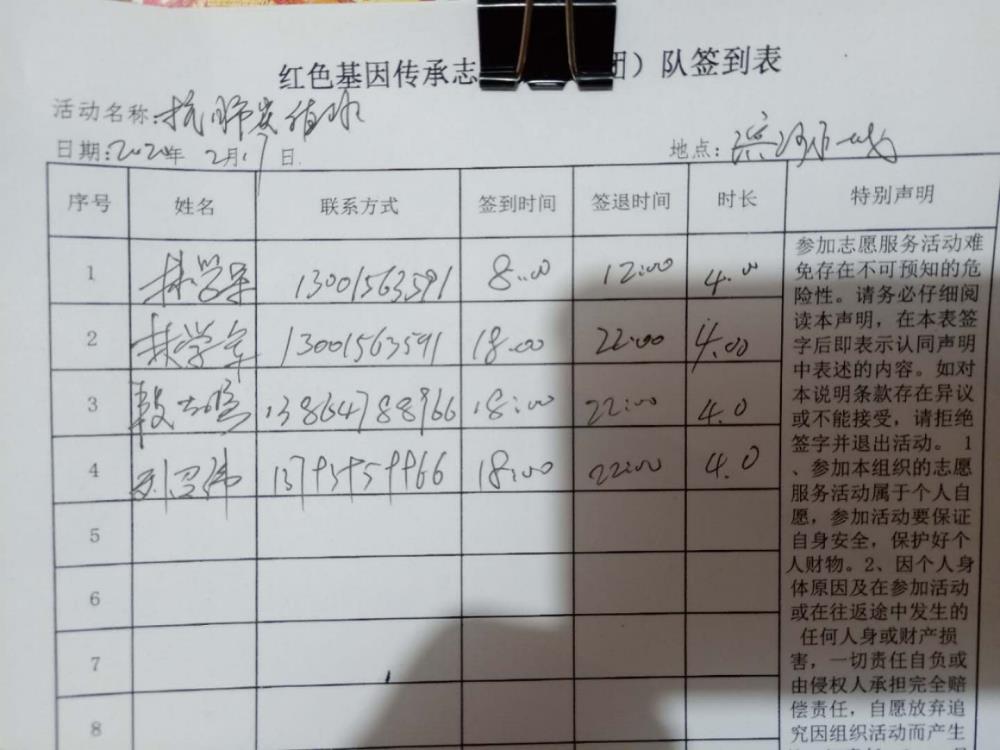 红色基因传承志 ）队签到表
活动名称:抗肺炎值班
日期:2020年 2月17日.
地点:
序号 姓名 联系方式 签到时间 签退时间 时长 特别声明
1 林学军 13001563591 8:00 12:00 4.00
2 林学军 13001563591 18:00 22:00 4.00
3 13864788966 18:00 22:00 4.0
4 18:00 22:00 4.0
5
6
7
8
参加志愿服务活动难
免存在不可预知的危
险性。请务必仔细阅
读本声明，在本表签
字后即表示认同声明
中表述的内容。如对
本说明条款存在异议
或不能接受，请拒绝
签字并退出活动。 1
、参加本组织的志愿
服务活动属于个人自
愿，参加活动要保证
自身安全，保护好个
人财物。2、因个人身
体原因及在参加活动
或在往返途中发生的
任何人身或财产损
害，一切责任自负或
由侵权人承担完全赔
偿责任，自愿放弃追
究因组织活动而产生